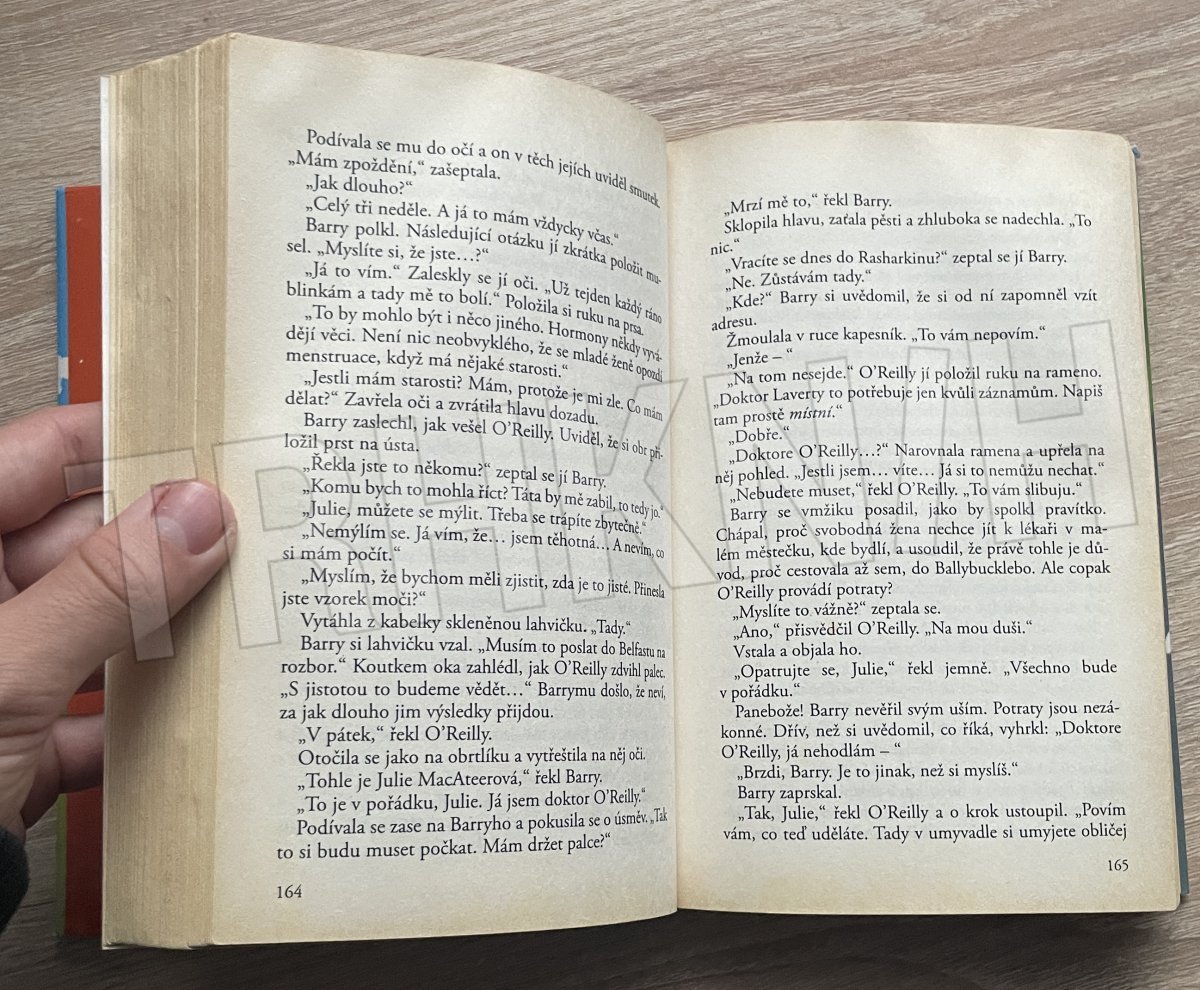 Podívala se mu do očí a on v těch jejích uviděl smutek.
„Mám zpoždění,“ zašeptala.
„Jak dlouho?“
„Celý tři neděle. A já to mám vždycky včas.“
Barry polkl. Následující otázku jí zkrátka položit mu-
sel. „Myslíte si, že jste…?“
„Já to vím.“ Zaleskly se jí oči. „Už tejden každý ráno
blinkám a tady mě to bolí.“ Položila si ruku na prsa.
„To by mohlo být i něco jiného. Hormony někdy vyvá-
dějí věci. Není nic neobvyklého, že se mladé ženě opozdí
menstruace, když má nějaké starosti.“
„Jestli mám starosti? Mám, protože je mi zle. Co mám
dělat?“ Zavřela oči a zvrátila hlavu dozadu.
Barry zaslechl, jak vešel O’Reilly. Uviděl, že si obr při-
ložil prst na ústa.
„Řekla jste to někomu?“ zeptal se jí Barry.
„Komu bych to mohla říct? Táta by mě zabil, to tedy jo.“
„Julie, můžete se mýlit. Třeba se trápíte zbytečně.“
„Nemýlím se. Já vím, že… jsem těhotná… A nevím, co
si mám počít.“
„Myslím, že bychom měli zjistit, zda je to jisté. Přinesla
jste vzorek moči?“
Vytáhla z kabelky skleněnou lahvičku. „Tady.“
Barry si lahvičku vzal. „Musím to poslat do Belfastu na
rozbor.“ Koutkem oka zahlédl, jak O’Reilly zdvihl palec.
„S jistotou to budeme vědět…“ Barrymu došlo, že neví,
za jak dlouho jim výsledky přijdou.
„V pátek,“ řekl O’Reilly.
Otočila se jako na obrtlíku a vytřeštila na něj oči.
„Tohle je Julie MacAteerová,“ řekl Barry.
„To je v pořádku, Julie. Já jsem doktor O’Reilly.“
Podívala se zase na Barryho a pokusila se o úsměv. „Tak
to si budu muset počkat. Mám držet palce?“
164
„Mrzí mě to,“ řekl Barry.
Sklopila hlavu, zaťala pěsti a zhluboka se nadechla. „To
nic.“
„Vracíte se dnes do Rasharkinu?“ zeptal se jí Barry.
„Ne. Zůstávám tady.“
„Kde?“ Barry si uvědomil, že si od ní zapomněl vzít
adresu.
Žmoulala v ruce kapesník. „To vám nepovím.“
„Jenže – “
„Na tom nesejde.“ O’Reilly jí položil ruku na rameno.
„Doktor Laverty to potřebuje jen kvůli záznamům. Napiš
tam prostě místní.“
„Dobře.“
„Doktore O’Reilly…?“ Narovnala ramena a upřela na
něj pohled. „Jestli jsem… víte… Já si to nemůžu nechat.“
„Nebudete muset,“ řekl O’Reilly. „To vám slibuju.“
Barry se vmžiku posadil, jako by spolkl pravítko.
Chápal, proč svobodná žena nechce jít k lékaři v ma-
lém městečku, kde bydlí, a usoudil, že právě tohle je dů-
vod, proč cestovala až sem, do Ballybucklebo. Ale copak
O’Reilly provádí potraty?
„Myslíte to vážně?“ zeptala se.
„Ano,“ přisvědčil O’Reilly. „Na mou duši.“
Vstala a objala ho.
„Opatrujte se, Julie,“ řekl jemně. „Všechno bude
v pořádku.“
Panebože! Barry nevěřil svým uším. Potraty jsou nezá-
konné. Dřív, než si uvědomil, co říká, vyhrkl: „Doktore
O’Reilly, já nehodlám – “
„Brzdi, Barry. Je to jinak, než si myslíš.“
Barry zaprskal.
„Tak, Julie,“ řekl O’Reilly a o krok ustoupil. „Povím
vám, co teď uděláte. Tady v umyvadle si umyjete obličej
165